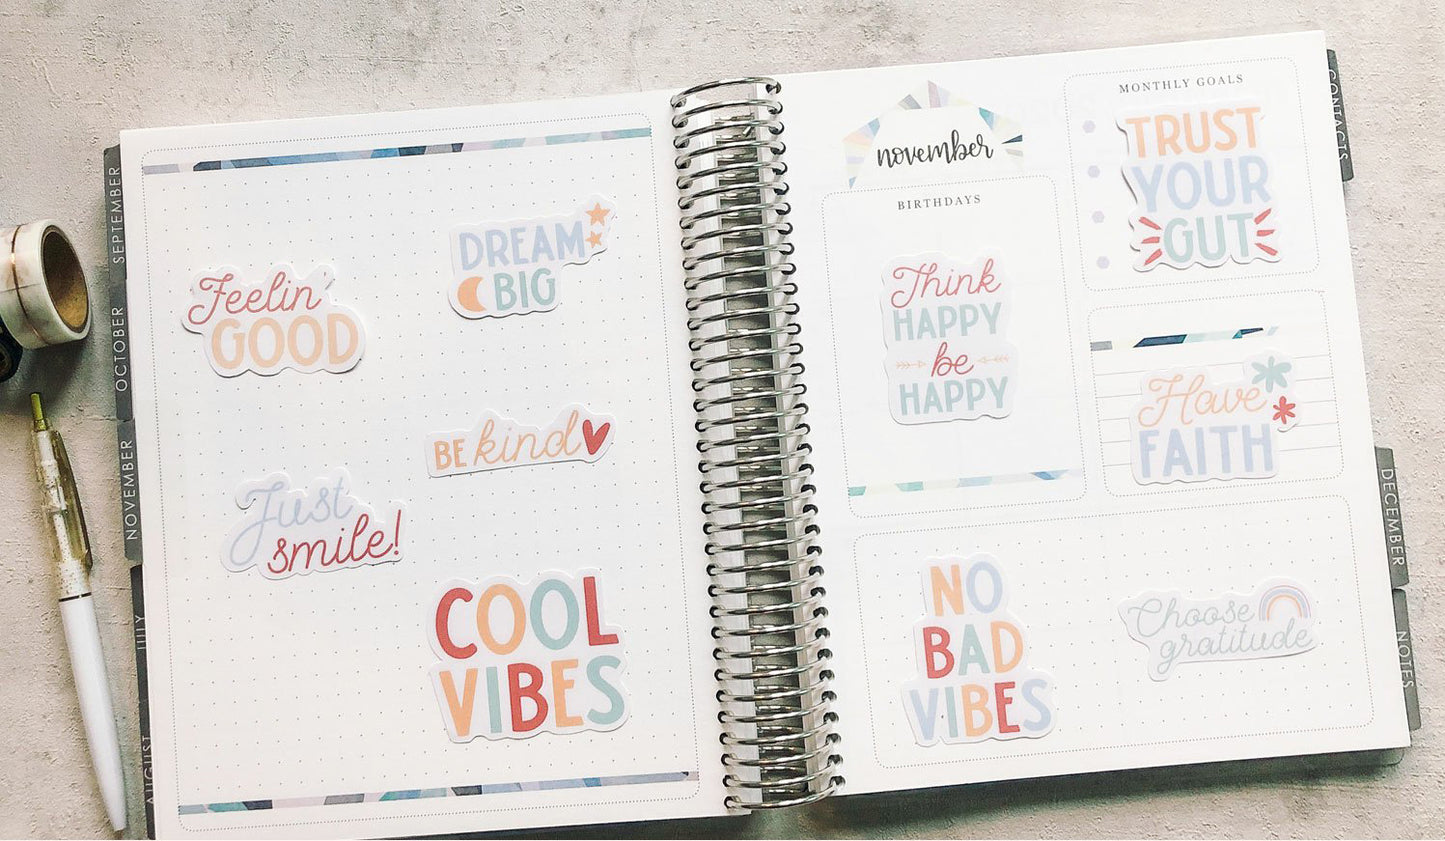 SEPTEMBER
OCTOBER
NOVEMBER
JULY
AUGUST
Feelin'
GOOD
DREAM
BIG
BE kind
Just
smile!
COOL
VIBES
november
BIRTHDAYS
Think
HAPPY
be
HAPPY
MONTHLY GOALS
TRUST
YOUR
GUT
Have
FAITH
NO
BAD
VIBES
Choose
gratitude
CONTACTS
DECEMBER
NOTES